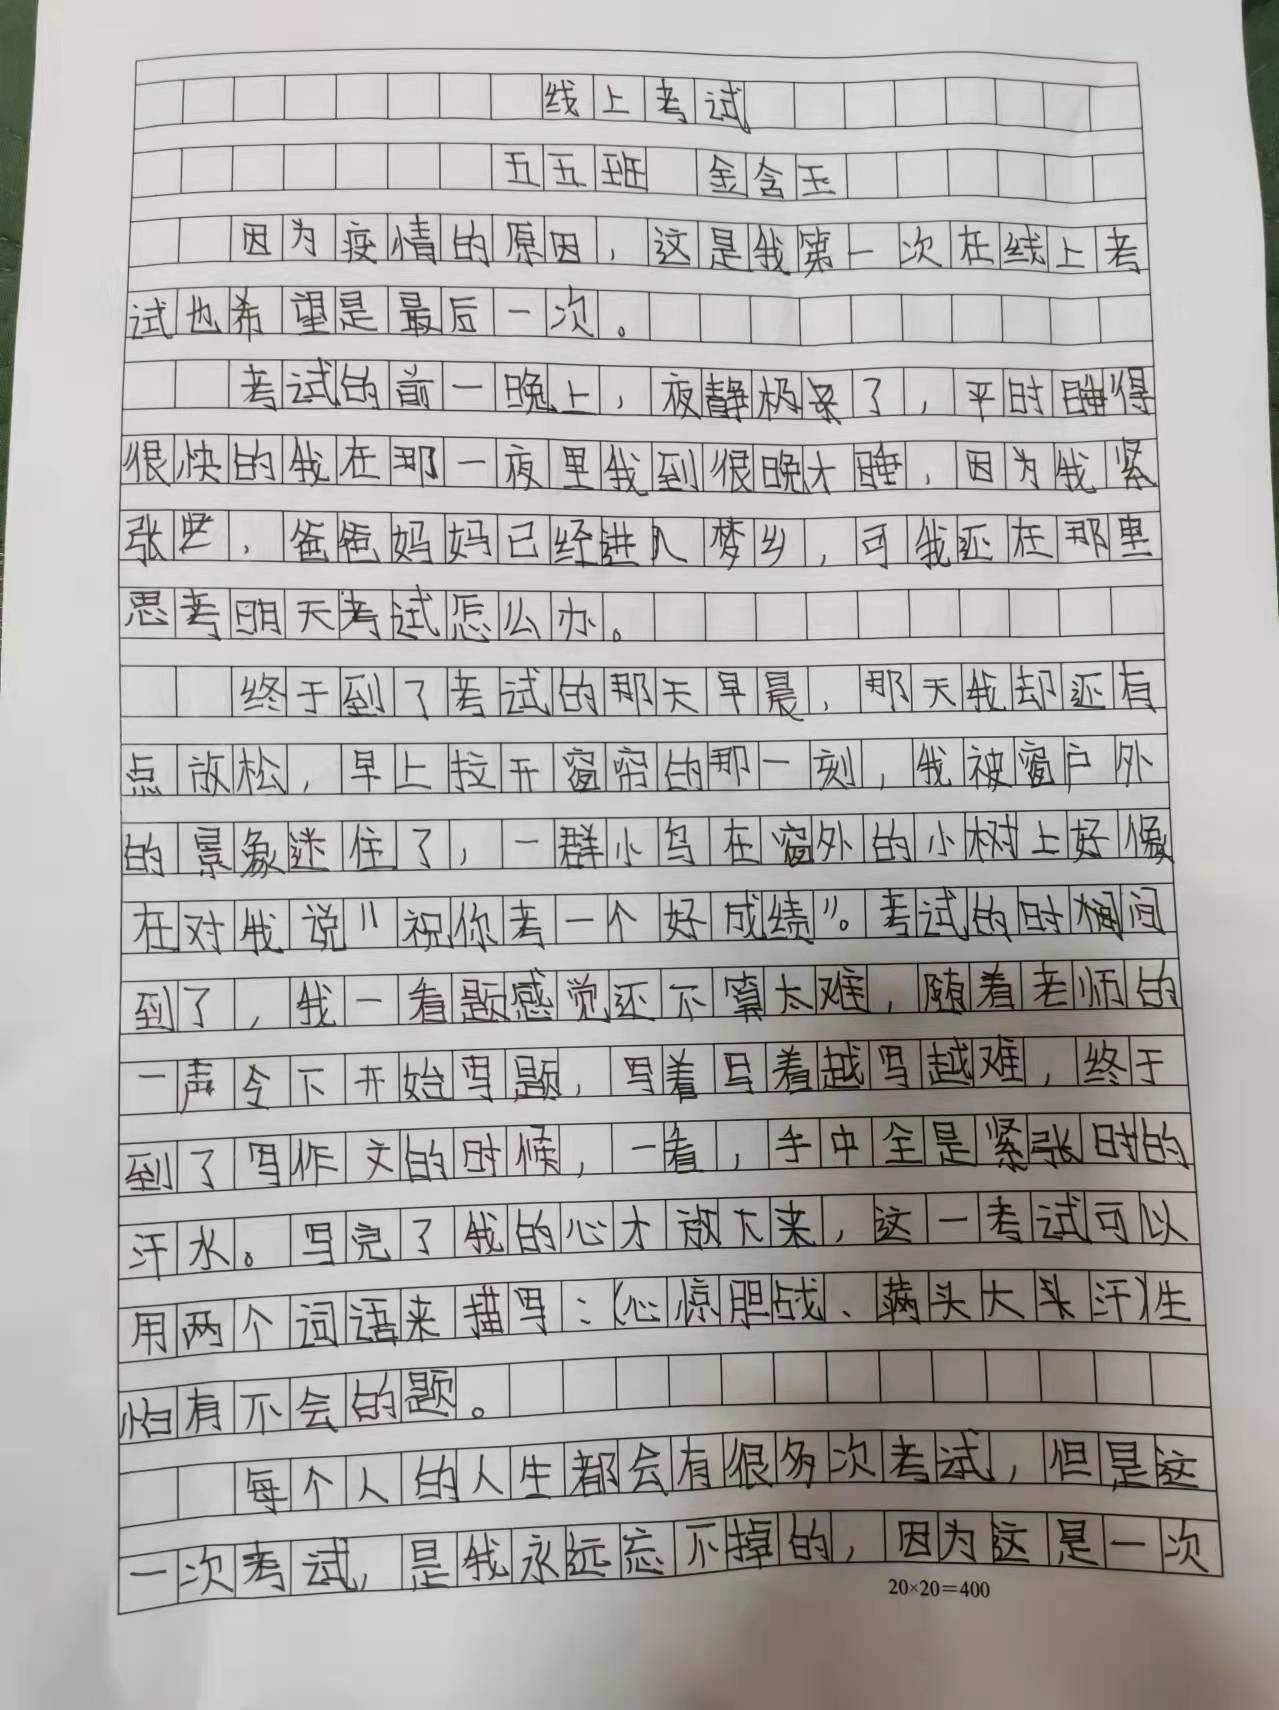 线上考试
五五班 金含玉
因为疫情的原因，这是我第一次在线上考
试也希望是最后一次。
考试的前一晚上，夜静极来了，平时睡得
很快的我在那一夜里我到很晚才睡，因为我紧
张，爸爸妈妈已经进入梦乡，可我还在那里
思考明天考试怎么办。
终于到了考试的那天早晨，那天我却还有
点放松，早上拉开窗帘的那一刻，我被窗户外
的景象迷住了，一群小鸟在窗外的小树上好像
在对我说"祝你考一个好成绩"。考试的时间
到了，我一看题感觉还不算太难，随着老师的
一声令下开始写题，写着写着越写越难，终于
到了写作文的时候，一看，手中全是紧张时的
汗水。写完了我的心才放下来，这一考试可以
用两个词语来描写：(心惊胆战、满头大头汗)生
怕有不会的题。
每个人的人生都会有很多次考试，但是这
一次考试，是我永远忘不掉的，因为这是一次
20×20=400